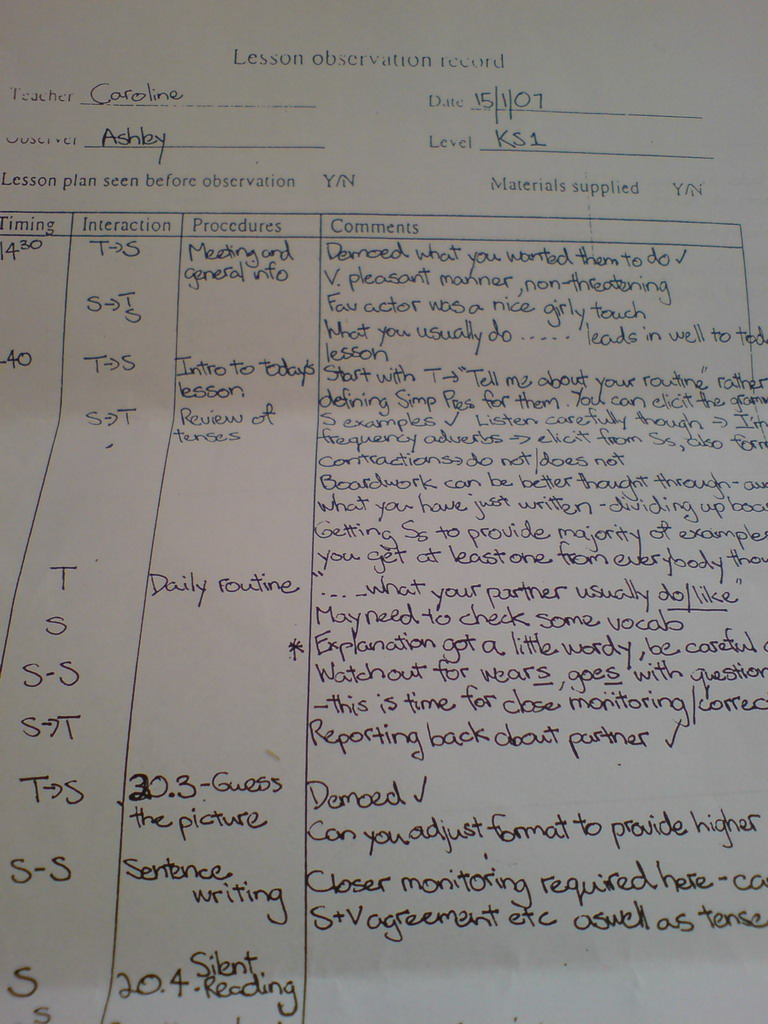 Lesson observation record
Teacher Caroline Date 15/1/07
Observer Ashby Level KS1
Lesson plan seen before observation Y/N Materials supplied Y/N
Timing Interaction Procedures Comments
14 30 T→S Meeting and general info Demoed what you wanted them to do ✓
V. pleasant manner, non-threatening
S→T S Fav actor was a nice girly touch
What you usually do ...... leads in well to
lesson
-40 T→S Intro to today's lesson Start with T→ "Tell me about your routine" rather
defining Simp Pres for them. You can elicit the
S→T Review of tenses S examples ✓ Listen carefully though →
frequency adverbs → elicit from Ss, also
contractions → do not/does not
Boardwork can be better thought through -
what you have just written - dividing up
Getting Ss to provide majority of examples
you get at least one from everybody
T Daily routine "..... what your partner usually do/like"
S May need to check some vocab
* Explanation got a little wordy, be careful
S-S Watch out for wears, goes with question
- this is time for close monitoring/
S→T Reporting back about partner ✓
T→S 20.3 - Guess the picture Demoed ✓
Can you adjust format to provide higher
S-S Sentence writing Closer monitoring required here -
S+V agreement etc aswell as tense
S 20.4. Silent Reading
S